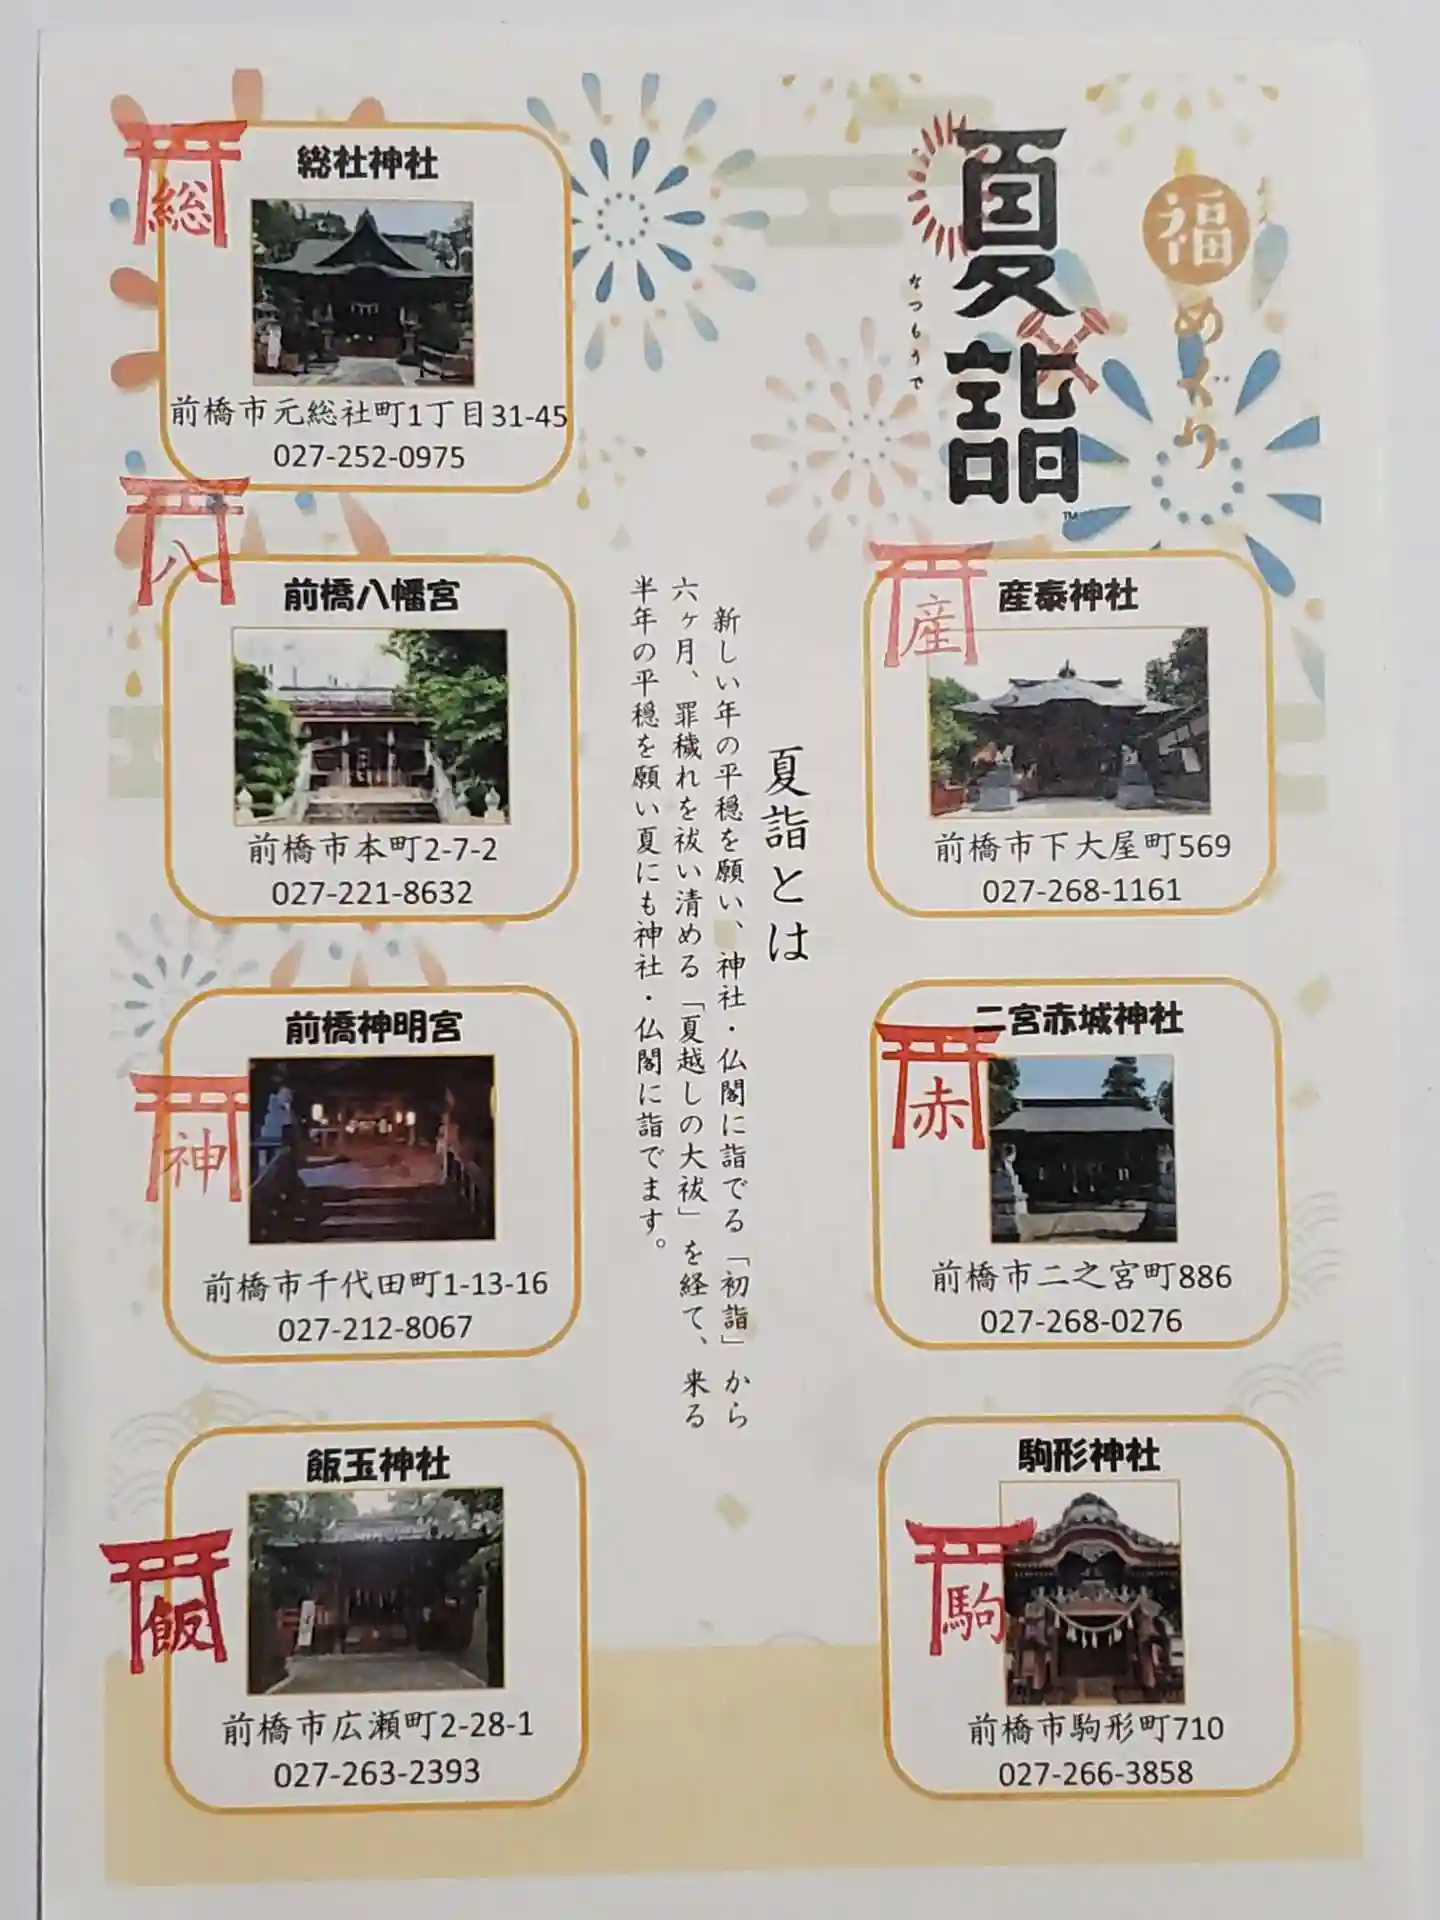 福めぐり
夏詣
なつもうで
TM
産泰神社
産
前橋市下大屋町569
027-268-1161
二宮赤城神社
赤
前橋市二之宮町886
027-268-0276
駒形神社
駒
前橋市駒形町710
027-266-3858
夏詣とは
新しい年の平穏を願い、神社・仏閣に詣でる「初詣」から
六ヶ月、罪穢れを祓い清める「夏越しの大祓」を経て、来る
半年の平穏を願い夏にも神社・仏閣に詣でます。
総社神社
総
前橋市元総社町1丁目31-45
027-252-0975
八
前橋八幡宮
前橋市本町2-7-2
027-221-8632
前橋神明宮
神
前橋市千代田町1-13-16
027-212-8067
飯玉神社
飯
前橋市広瀬町2-28-1
027-263-2393